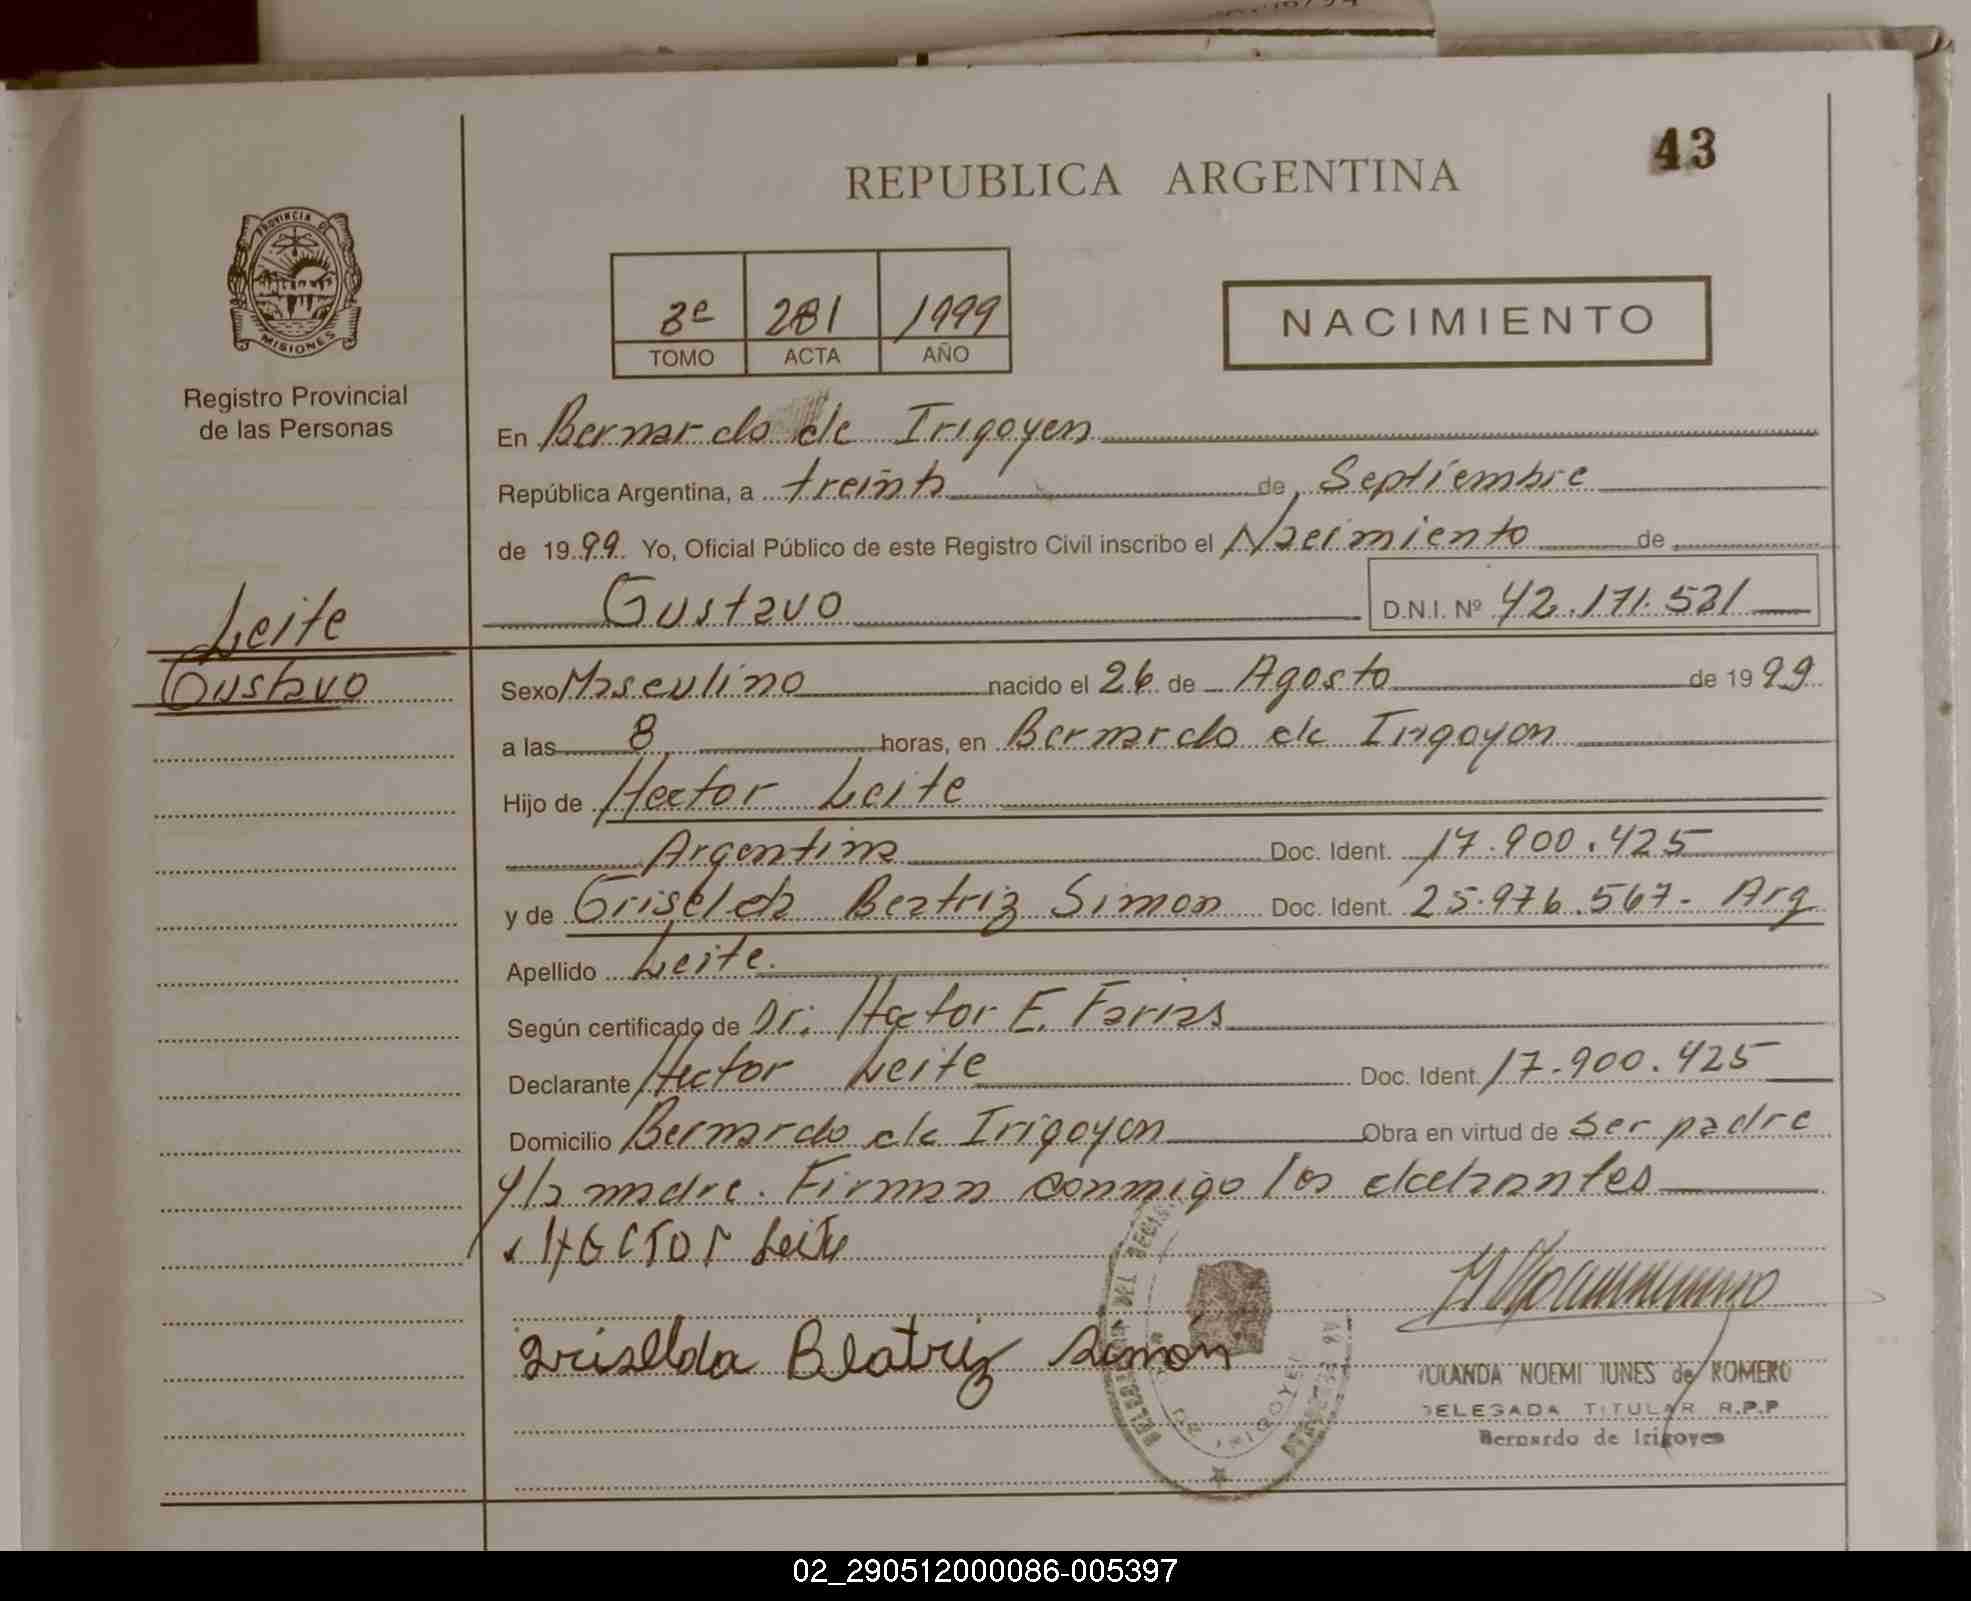 43
REPUBLICA ARGENTINA
PROVINCIA DE
MISIONES
Registro Provincial
de las Personas
3º 281 1999
TOMO ACTA AÑO
NACIMIENTO
En Bernardo de Irigoyen
República Argentina, a treinta de Septiembre
de 1999 Yo, Oficial Público de este Registro Civil inscribo el Nacimiento de
Gustavo D.N.I. Nº 42.171.521
Leite
Gustavo
Sexo Masculino nacido el 26 de Agosto de 1999
a las 8 horas, en Bernardo de Irigoyen
Hijo de Hector Leite
Argentina Doc. Ident. 17.900.425
y de Griselda Beatriz Simon Doc. Ident. 25.976.567- Arg
Apellido Leite.
Según certificado de Dr. Hector E. Farias
Declarante Hector Leite Doc. Ident. 17.900.425
Domicilio Bernardo de Irigoyen Obra en virtud de ser padre
y la madre. Firman conmigo los declarantes
HECTOR Leite
Griselda Beatriz Simón
NOEMI JUNES de ROMERO
DELEGADA TITULAR R.P.P
Bernardo de Irigoyen
02_290512000086-005397